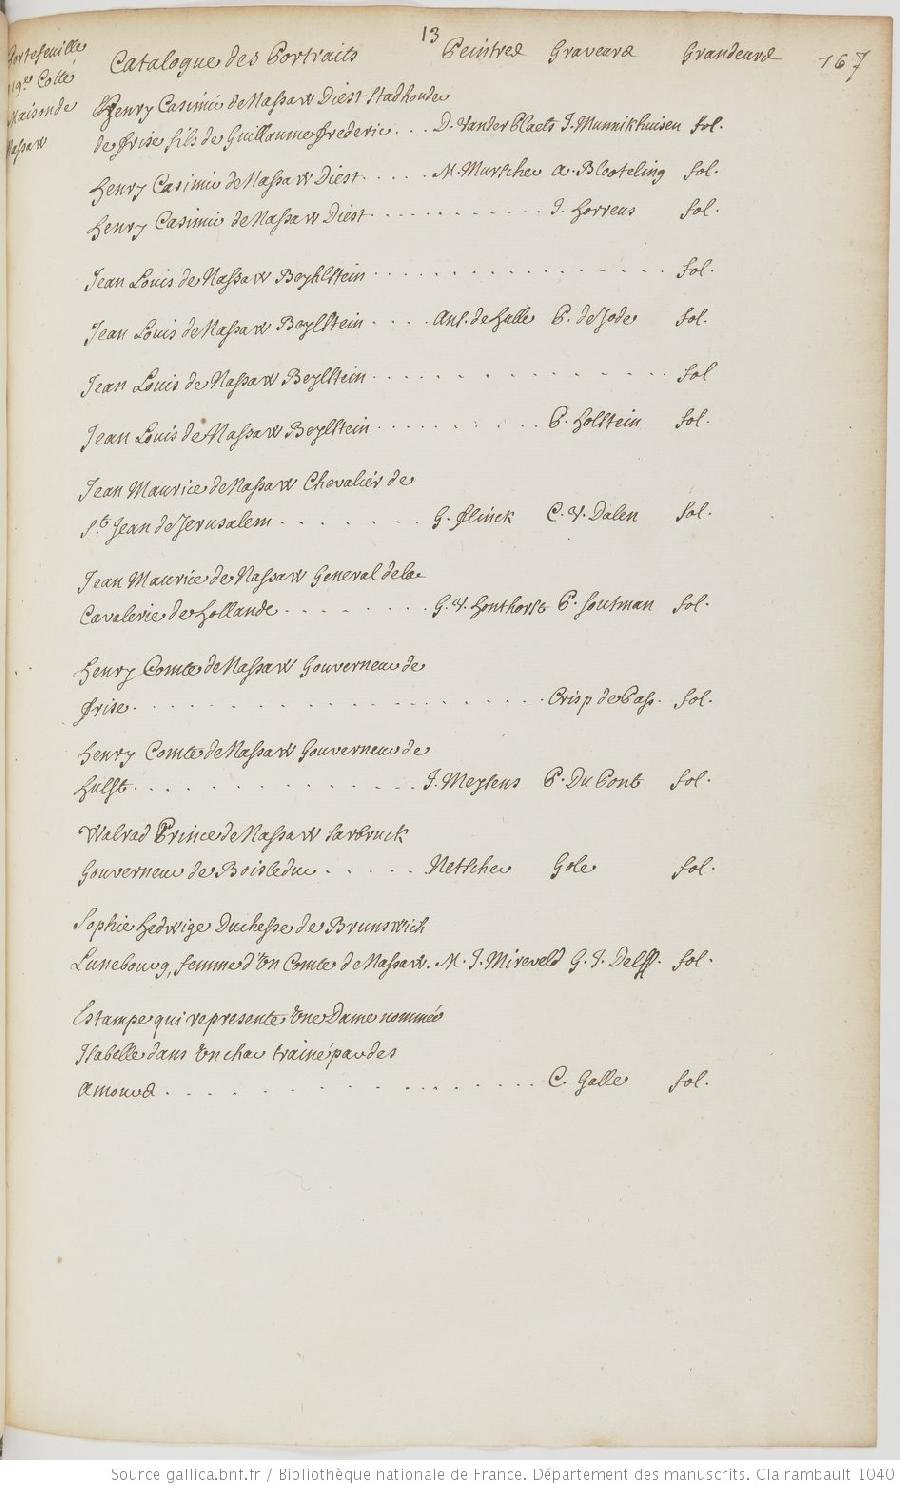 13
167
Portefeuille
19.e Cotté
Maison de
Nassaw
Catalogue des Portraits Peintres Graveurs Grandeurs
Henry Casimir de Nassaw Diest Stadhouder
de frise fils de Guillaume frederic . . . D. Vander Plaets J. Munnikhuisen fol.
Henry Casimir de Nassaw Diest . . . . . M. Murscher a. Blooteling fol.
Henry Casimir de Nassaw Diest . . . . . . . . . . . J. Gorreus fol.
Jean Louis de Nassaw Beyhlstein . . . . . . . . . . . . . . . . . . fol.
Jean Louis de Nassaw Beylstein . . . . Ant. de Hulle P. de Jode fol.
Jean Louis de Nassaw Beylstein . . . . . . . . . . . . . . . fol
Jean Louis de Nassaw Beylstein . . . . . . . . . . P. Holstein fol.
Jean Maurice de Nassaw Chevalier de
St. Jean de Jerusalem . . . . . . . G. flinck C. V. Dalen fol.
Jean Maurice de Nassaw General de la
Cavalerie de Hollande . . . . . . . . G. V. Honthorst P. Soutman fol.
Henry Comte de Nassaw Gouverneur de
frise . . . . . . . . . . . . . . . . . . . . . Crisp de Pass. fol.
Henry Comte de Nassaw Gouverneur de
Hulst . . . . . . . . . . . . . . J. Meytens P. Du Pont fol.
Walrad Prince de Nassaw Sarbruck
Gouverneur de Boisleduc . . . . . Netscher Gole fol.
Sophie Hedwige Duchesse de Brunswich
Lunebourg, femme d'Un Comte de Nassaw. M. J. Mireveld G. J. Delff. fol.
Estampe qui represente Une Dame nommée
Isabelle dans Un char trainé par des
amours . . . . . . . . . . . . . . C. Galle fol.
Source gallica.bnf.fr / Bibliothèque nationale de France. Département des manuscrits. Clairambault 1040